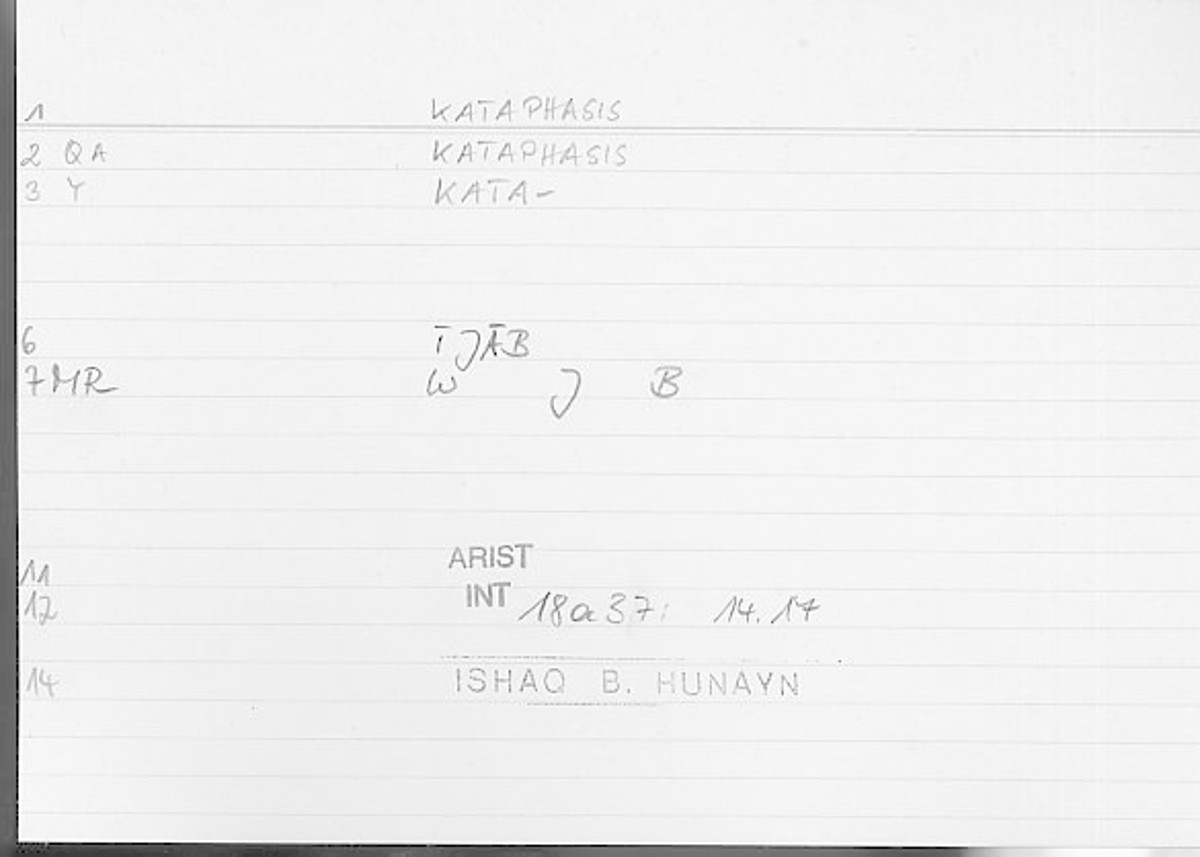 1 KATAPHASIS
2 QA KATAPHASIS
3 Y KATA-
6 ĪJĀB
7 MR W J B
11 ARIST
12 INT 18a37; 14.17
14 ISHAQ B. HUNAYN